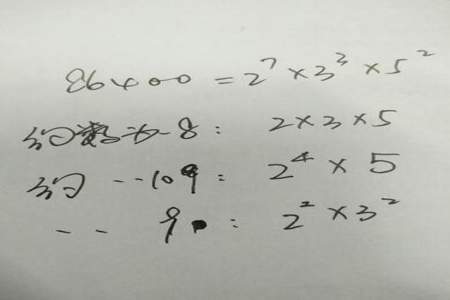 86400 = 2⁷ × 3³ × 5²
约数为8: 2×3×5
约 --10: 2⁴ × 5
-- 9: 2² × 3²